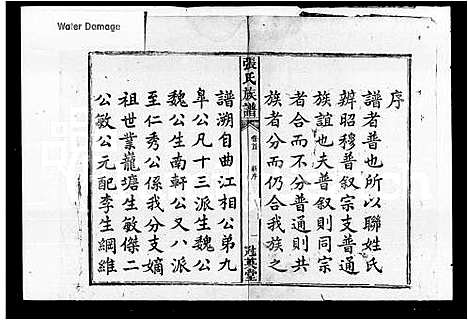 Water Damage
序
譜者普也所以聯姓氏
辨昭穆普叙宗支普通
族誼也夫普叙則同宗
者合而不分普通則共
族者分而仍合我族之
張氏族譜
卷首
序
一
譜溯自曲江相公弟九
皐公凡十三派生魏公
魏公生南軒公又八派
至仁秀公係我分支嫡
祖世業龍塘生敏傑二
公敏公元配李生綱維